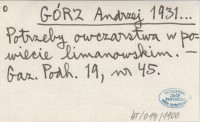 GÓRZ Andrzej 1931...
Potrzeby owczarstwa w po-
wiecie limanowskim.
Gaz. Podh. 19, nr 45.